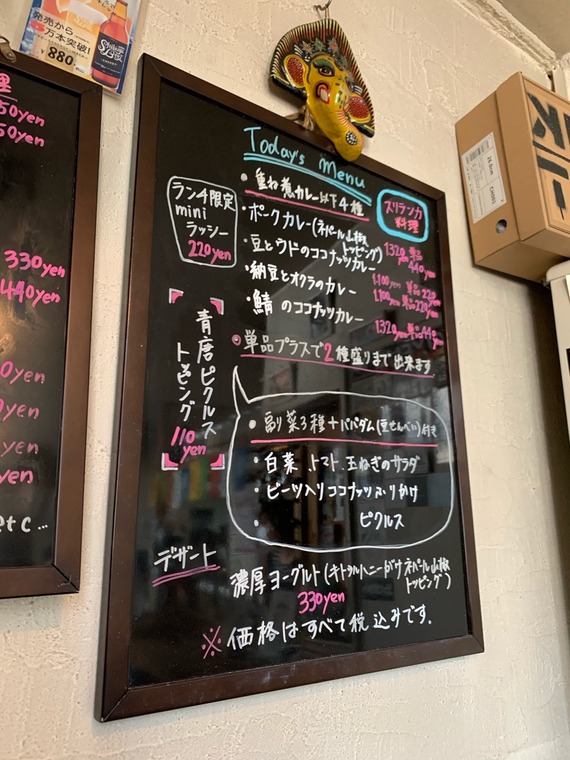 発売から
万本突破!
¥880
理
50yen
50yen
330yen
440yen
0yen
yen
yen
yen
etc...
Today's menu
スリランカ
料理
ラン4限定
mini
ラッシー
220yen
・重ね煮カレー以下4種
・ポークカレー(ネパール山椒
トッピング)
1320yen 単品440yen
・豆とウドのココナッツカレー
1100yen 単品220yen
・納豆とオクラのカレー
1100yen 単品220yen
・鯖のココナッツカレー
1320yen 単品440yen
・単品プラスで2種盛りまで出来ます
青唐ピクルス
トッピング
110
yen
・副菜3種+パパダム(豆せんべい)付き
・白菜、トマト、玉ねぎのサラダ
・ビーツ入りココナッツふりかけ
・ピクルス
デザート
濃厚ヨーグルト(キトゥルハニーがけ ネパール山椒
トッピング)
330yen
※価格はすべて税込みです.